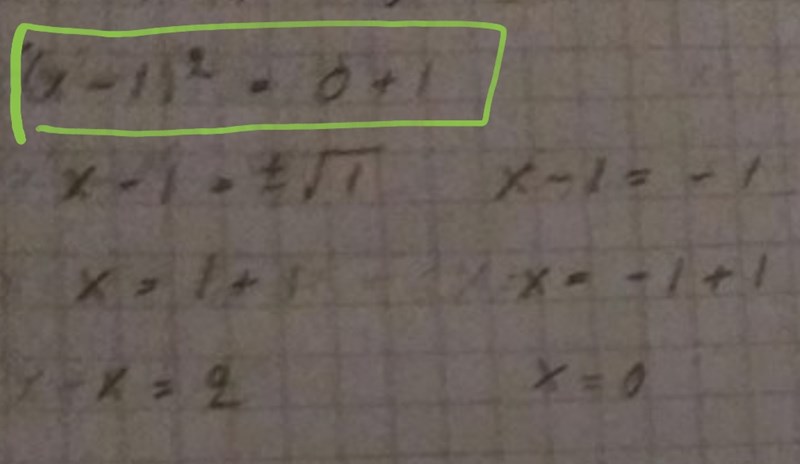 (x-1)² = 0+1
x-1 = ±√1 x-1 = -1
x = 1+1 x = -1+1
x = 2 x = 0